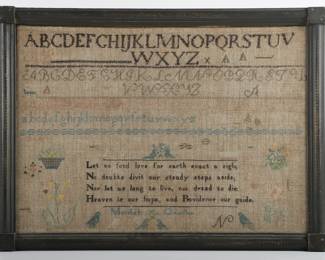 ABCDEFGHIJKLMNOPQRSTUV
WXYZ
ABCDEFGHIJKLMNOPQRSTU
VWXYZ A
abcdefghijklmnopqrstuvwxyz
Let no fond love for earth exact a sigh,
No doubts divert our steady steps aside;
Nor let us long to live, nor dread to die,
Heaven is our hope, and Providence our guide.
N